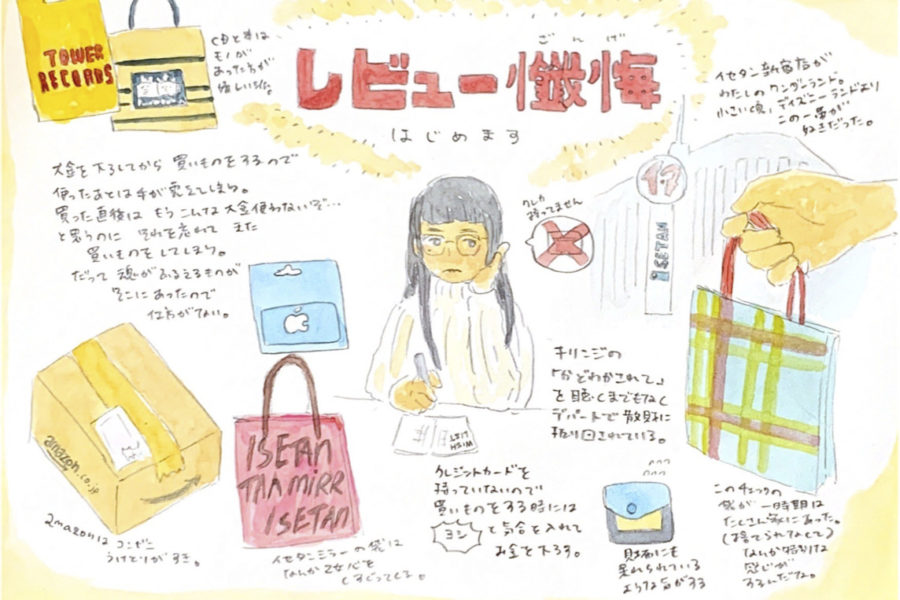 TOWER
RECORDS
CDと本は
モノが
あった方が
嬉しい派。
ざんげ
レビュー懺悔
はじめます
イセタン新宿店が
わたしのワンダーランド。
小さい頃、ディズニーランドより
この一帯が
好きだった。
大金を下ろしてから 買いものをするので
使ったあとは手が震えてしまう。
買った直後は もうこんな大金使わないぞ…
と思うのに それを忘れて また
買いものをしてしまう。
だって 魂がふるえるものが
そこにあったので
仕方がない。
クレカ
持ってません
ISETAN
キリンジの
「かどわかされて」
を聴くまでもなく
デパートで散財に
振り回されている。
WISH
LIST
amazon.co.jp
ISETAN
MIRR
ISETAN
クレジットカードを
持っていないので
買いものをする時には
ヨシ と気合を入れて
お金を下ろす。
amazonは コンビニ
うけとりがすき。
イセタンミラーの袋は
なんか乙女心を
くすぐってくる。
財布にも
呆れられている
ような気がする
このチェックの
袋が一時期は
たくさん家にあった。
(捨てられなくて)
なんか特別な
感じが
するんだな。